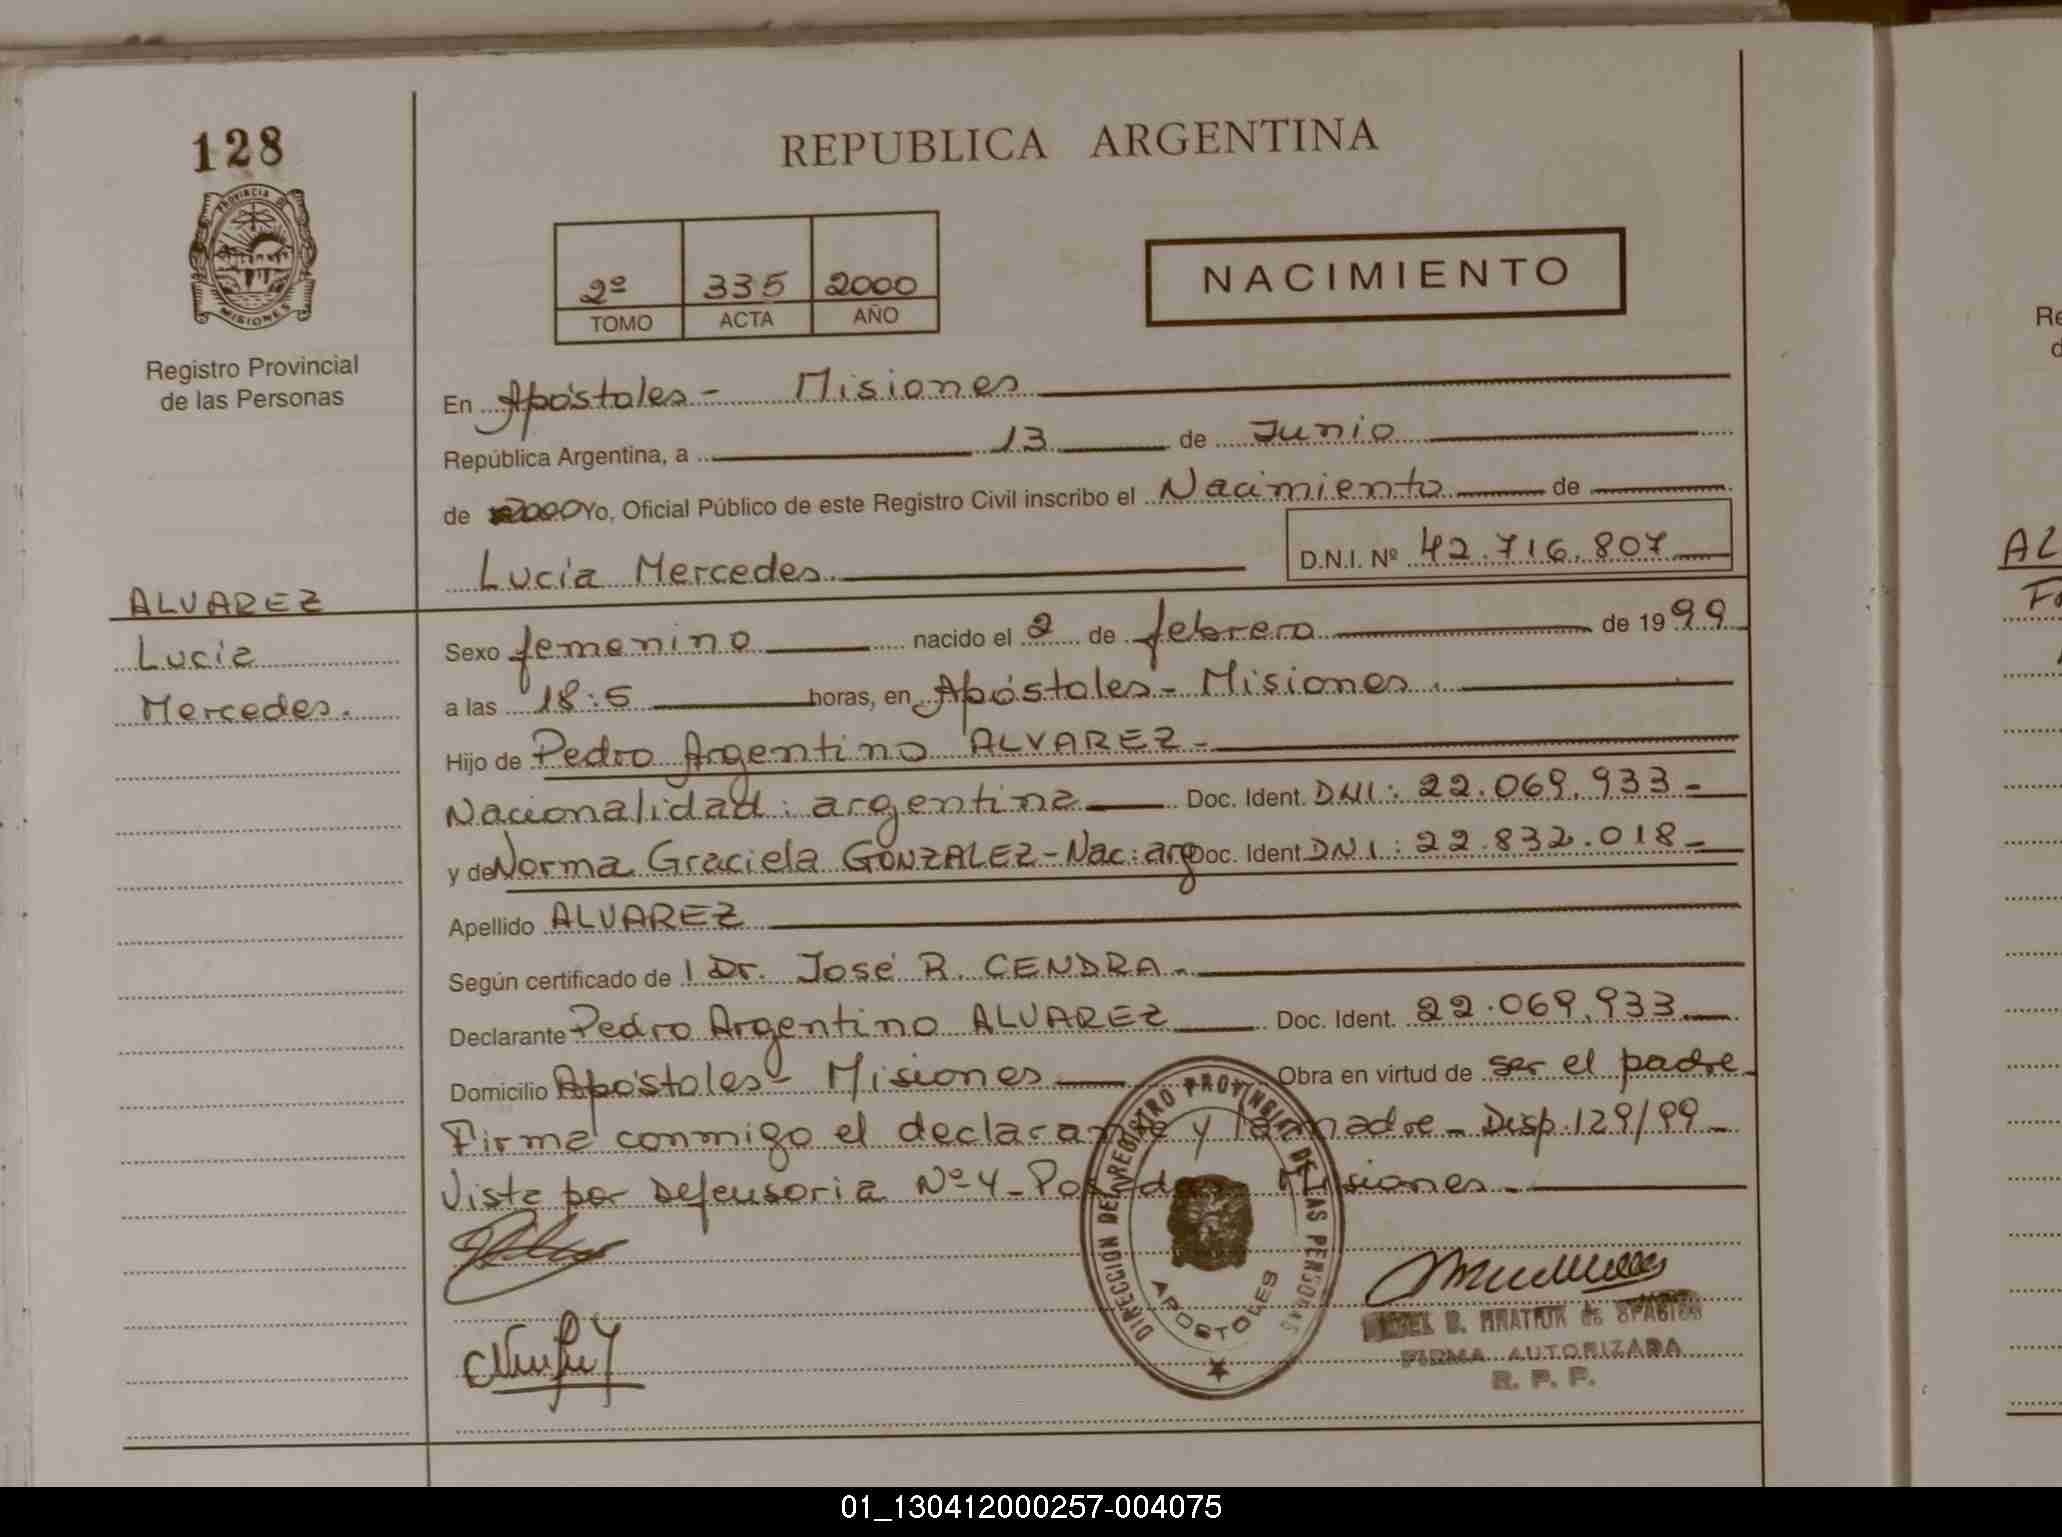 128
REPUBLICA ARGENTINA
PROVINCIA DE
MISIONES
Registro Provincial
de las Personas
2º 335 2000
TOMO ACTA AÑO
NACIMIENTO
En Apóstoles - Misiones
República Argentina, a 13 de Junio
de 2000 Yo, Oficial Público de este Registro Civil inscribo el Nacimiento de
Lucía Mercedes D.N.I. Nº 42.716.807
ALVAREZ
Lucía
Mercedes.
Sexo femenino nacido el 2 de febrero de 1999
a las 18:5 horas, en Apóstoles - Misiones.
Hijo de Pedro Argentino ALVAREZ-
Nacionalidad: argentina Doc. Ident. DNI: 22.069.933-
y de Norma Graciela GONZALEZ-Nac: arg Doc. Ident DNI: 22.832.018-
Apellido ALVAREZ
Según certificado de l Dr. José R. CENDRA-
Declarante Pedro Argentino ALVAREZ Doc. Ident. 22.069.933
Domicilio Apóstoles- Misiones Obra en virtud de ser el padre-
Firma conmigo el declarante y la madre- Disp. 129/99-
Vista por Defensoria Nº 4- Posadas Misiones-
DIRECCIÓN DEL REGISTRO PROVINCIAL DE LAS PERSONAS
APOSTOLES
FIRMA AUTORIZADA
R. P. P.
Re
d
AL
Fa
01_130412000257-004075